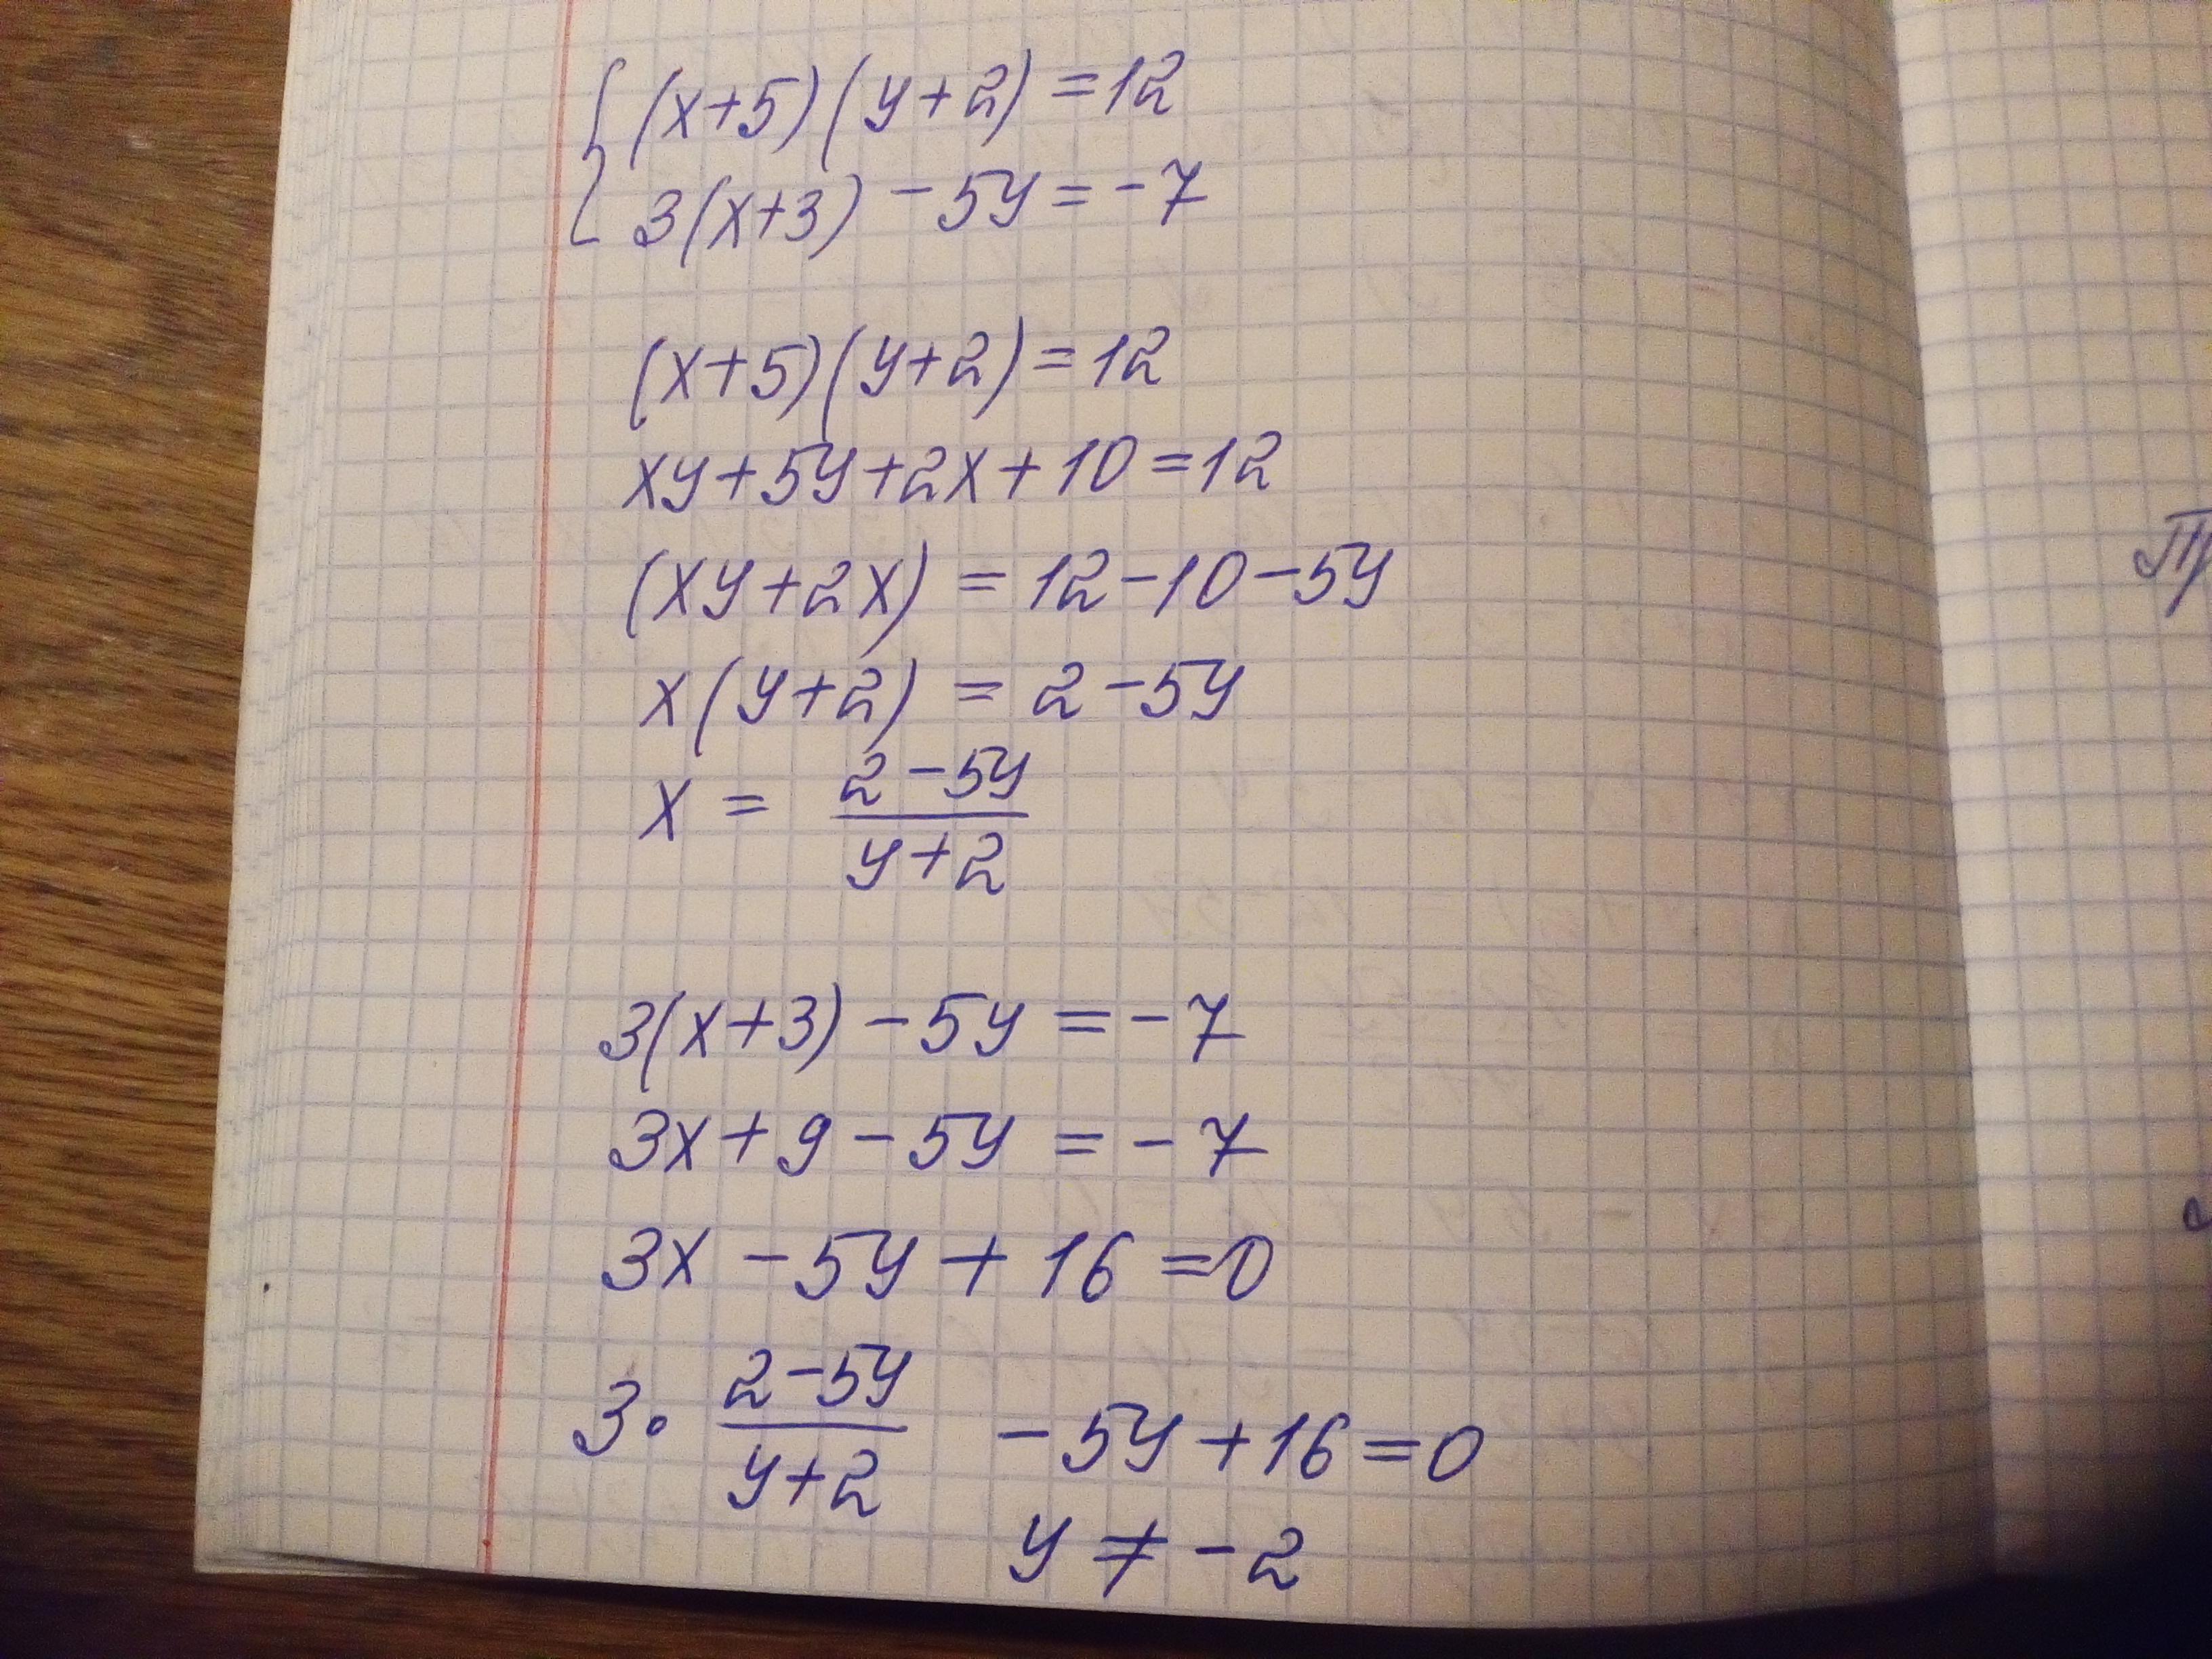 { (x+5)(y+2) = 12
3(x+3) - 5y = -7
(x+5)(y+2) = 12
xy + 5y + 2x + 10 = 12
(xy + 2x) = 12 - 10 - 5y
x(y+2) = 2 - 5y
x = \frac{2-5y}{y+2}
3(x+3) - 5y = -7
3x + 9 - 5y = -7
3x - 5y + 16 = 0
3 \cdot \frac{2-5y}{y+2} - 5y + 16 = 0
y ≠ -2